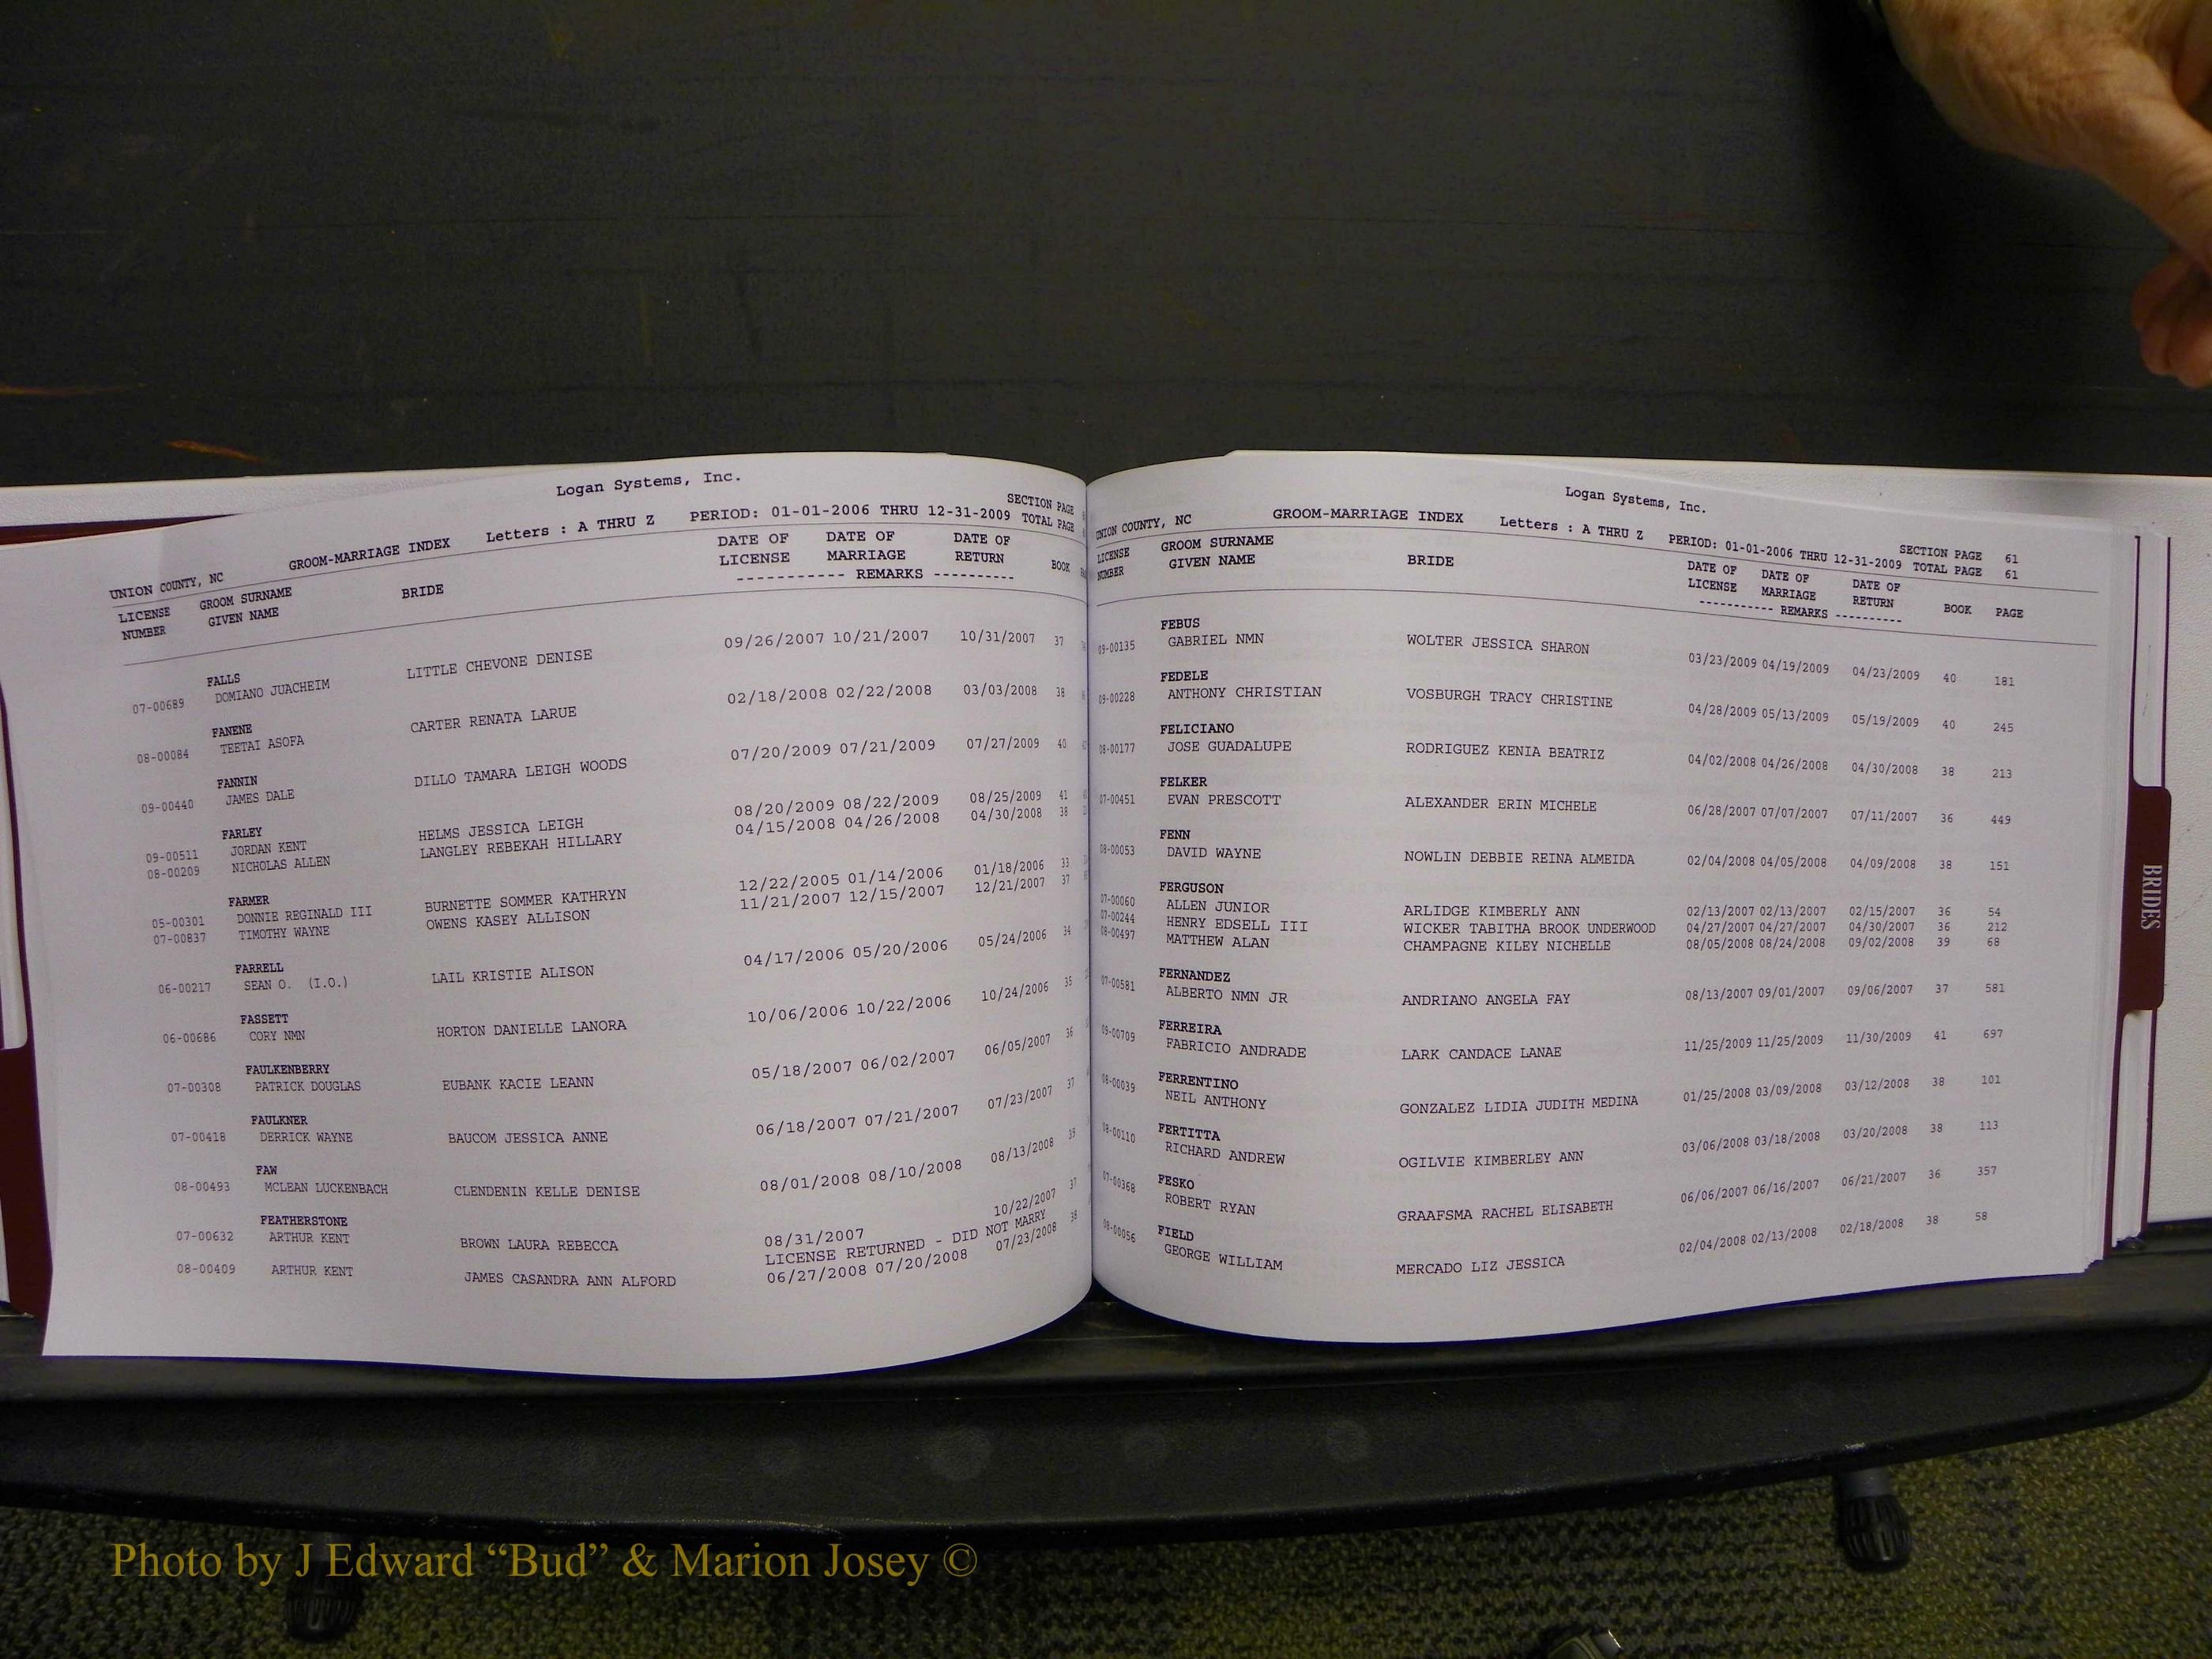 Logan Systems, Inc.
UNION COUNTY, NC GROOM-MARRIAGE INDEX Letters : A THRU Z PERIOD: 01-01-2006 THRU 12-31-2009 SECTION PAGE
TOTAL PAGE
LICENSE GROOM SURNAME BRIDE DATE OF DATE OF DATE OF BOOK
NUMBER GIVEN NAME LICENSE MARRIAGE RETURN
----------- REMARKS ----------
FALLS
07-00689 DOMIANO JUACHEIM LITTLE CHEVONE DENISE 09/26/2007 10/21/2007 10/31/2007 37
FANENE
08-00084 TEETAI ASOFA CARTER RENATA LARUE 02/18/2008 02/22/2008 03/03/2008 38
FANNIN
09-00440 JAMES DALE DILLO TAMARA LEIGH WOODS 07/20/2009 07/21/2009 07/27/2009 40
FARLEY
09-00511 JORDAN KENT HELMS JESSICA LEIGH 08/20/2009 08/22/2009 08/25/2009 41
08-00209 NICHOLAS ALLEN LANGLEY REBEKAH HILLARY 04/15/2008 04/26/2008 04/30/2008 38
FARMER
05-00301 DONNIE REGINALD III BURNETTE SOMMER KATHRYN 12/22/2005 01/14/2006 01/18/2006 33
07-00837 TIMOTHY WAYNE OWENS KASEY ALLISON 11/21/2007 12/15/2007 12/21/2007 37
FARRELL
06-00217 SEAN O. (I.O.) LAIL KRISTIE ALISON 04/17/2006 05/20/2006 05/24/2006 34
FASSETT
06-00686 CORY NMN HORTON DANIELLE LANORA 10/06/2006 10/22/2006 10/24/2006 35
FAULKENBERRY
07-00308 PATRICK DOUGLAS EUBANK KACIE LEANN 05/18/2007 06/02/2007 06/05/2007 36
FAULKNER
07-00418 DERRICK WAYNE BAUCOM JESSICA ANNE 06/18/2007 07/21/2007 07/23/2007 37
FAW
08-00493 MCLEAN LUCKENBACH CLENDENIN KELLE DENISE 08/01/2008 08/10/2008 08/13/2008
FEATHERSTONE
07-00632 ARTHUR KENT BROWN LAURA REBECCA 08/31/2007 10/22/2007 37
LICENSE RETURNED - DID NOT MARRY
08-00409 ARTHUR KENT JAMES CASANDRA ANN ALFORD 06/27/2008 07/20/2008 07/23/2008
Logan Systems, Inc.
UNION COUNTY, NC GROOM-MARRIAGE INDEX Letters : A THRU Z PERIOD: 01-01-2006 THRU 12-31-2009 SECTION PAGE 61
TOTAL PAGE 61
LICENSE GROOM SURNAME BRIDE DATE OF DATE OF DATE OF BOOK PAGE
NUMBER GIVEN NAME LICENSE MARRIAGE RETURN
----------- REMARKS ----------
FEBUS
09-00135 GABRIEL NMN WOLTER JESSICA SHARON 03/23/2009 04/19/2009 04/23/2009 40 181
FEDELE
09-00228 ANTHONY CHRISTIAN VOSBURGH TRACY CHRISTINE 04/28/2009 05/13/2009 05/19/2009 40 245
FELICIANO
08-00177 JOSE GUADALUPE RODRIGUEZ KENIA BEATRIZ 04/02/2008 04/26/2008 04/30/2008 38 213
FELKER
07-00451 EVAN PRESCOTT ALEXANDER ERIN MICHELE 06/28/2007 07/07/2007 07/11/2007 36 449
FENN
08-00053 DAVID WAYNE NOWLIN DEBBIE REINA ALMEIDA 02/04/2008 04/05/2008 04/09/2008 38 151
FERGUSON
07-00060 ALLEN JUNIOR ARLIDGE KIMBERLY ANN 02/13/2007 02/13/2007 02/15/2007 36 54
07-00244 HENRY EDSELL III WICKER TABITHA BROOK UNDERWOOD 04/27/2007 04/27/2007 04/30/2007 36 212
08-00497 MATTHEW ALAN CHAMPAGNE KILEY NICHELLE 08/05/2008 08/24/2008 09/02/2008 39 68
FERNANDEZ
07-00581 ALBERTO NMN JR ANDRIANO ANGELA FAY 08/13/2007 09/01/2007 09/06/2007 37 581
FERREIRA
09-00709 FABRICIO ANDRADE LARK CANDACE LANAE 11/25/2009 11/25/2009 11/30/2009 41 697
FERRENTINO
08-00039 NEIL ANTHONY GONZALEZ LIDIA JUDITH MEDINA 01/25/2008 03/09/2008 03/12/2008 38 101
FERTITTA
08-00110 RICHARD ANDREW OGILVIE KIMBERLEY ANN 03/06/2008 03/18/2008 03/20/2008 38 113
FESKO
07-00368 ROBERT RYAN GRAAFSMA RACHEL ELISABETH 06/06/2007 06/16/2007 06/21/2007 36 357
FIELD
08-00056 GEORGE WILLIAM MERCADO LIZ JESSICA 02/04/2008 02/13/2008 02/18/2008 38 58
BRIDES
Photo by J Edward “Bud” & Marion Josey ©